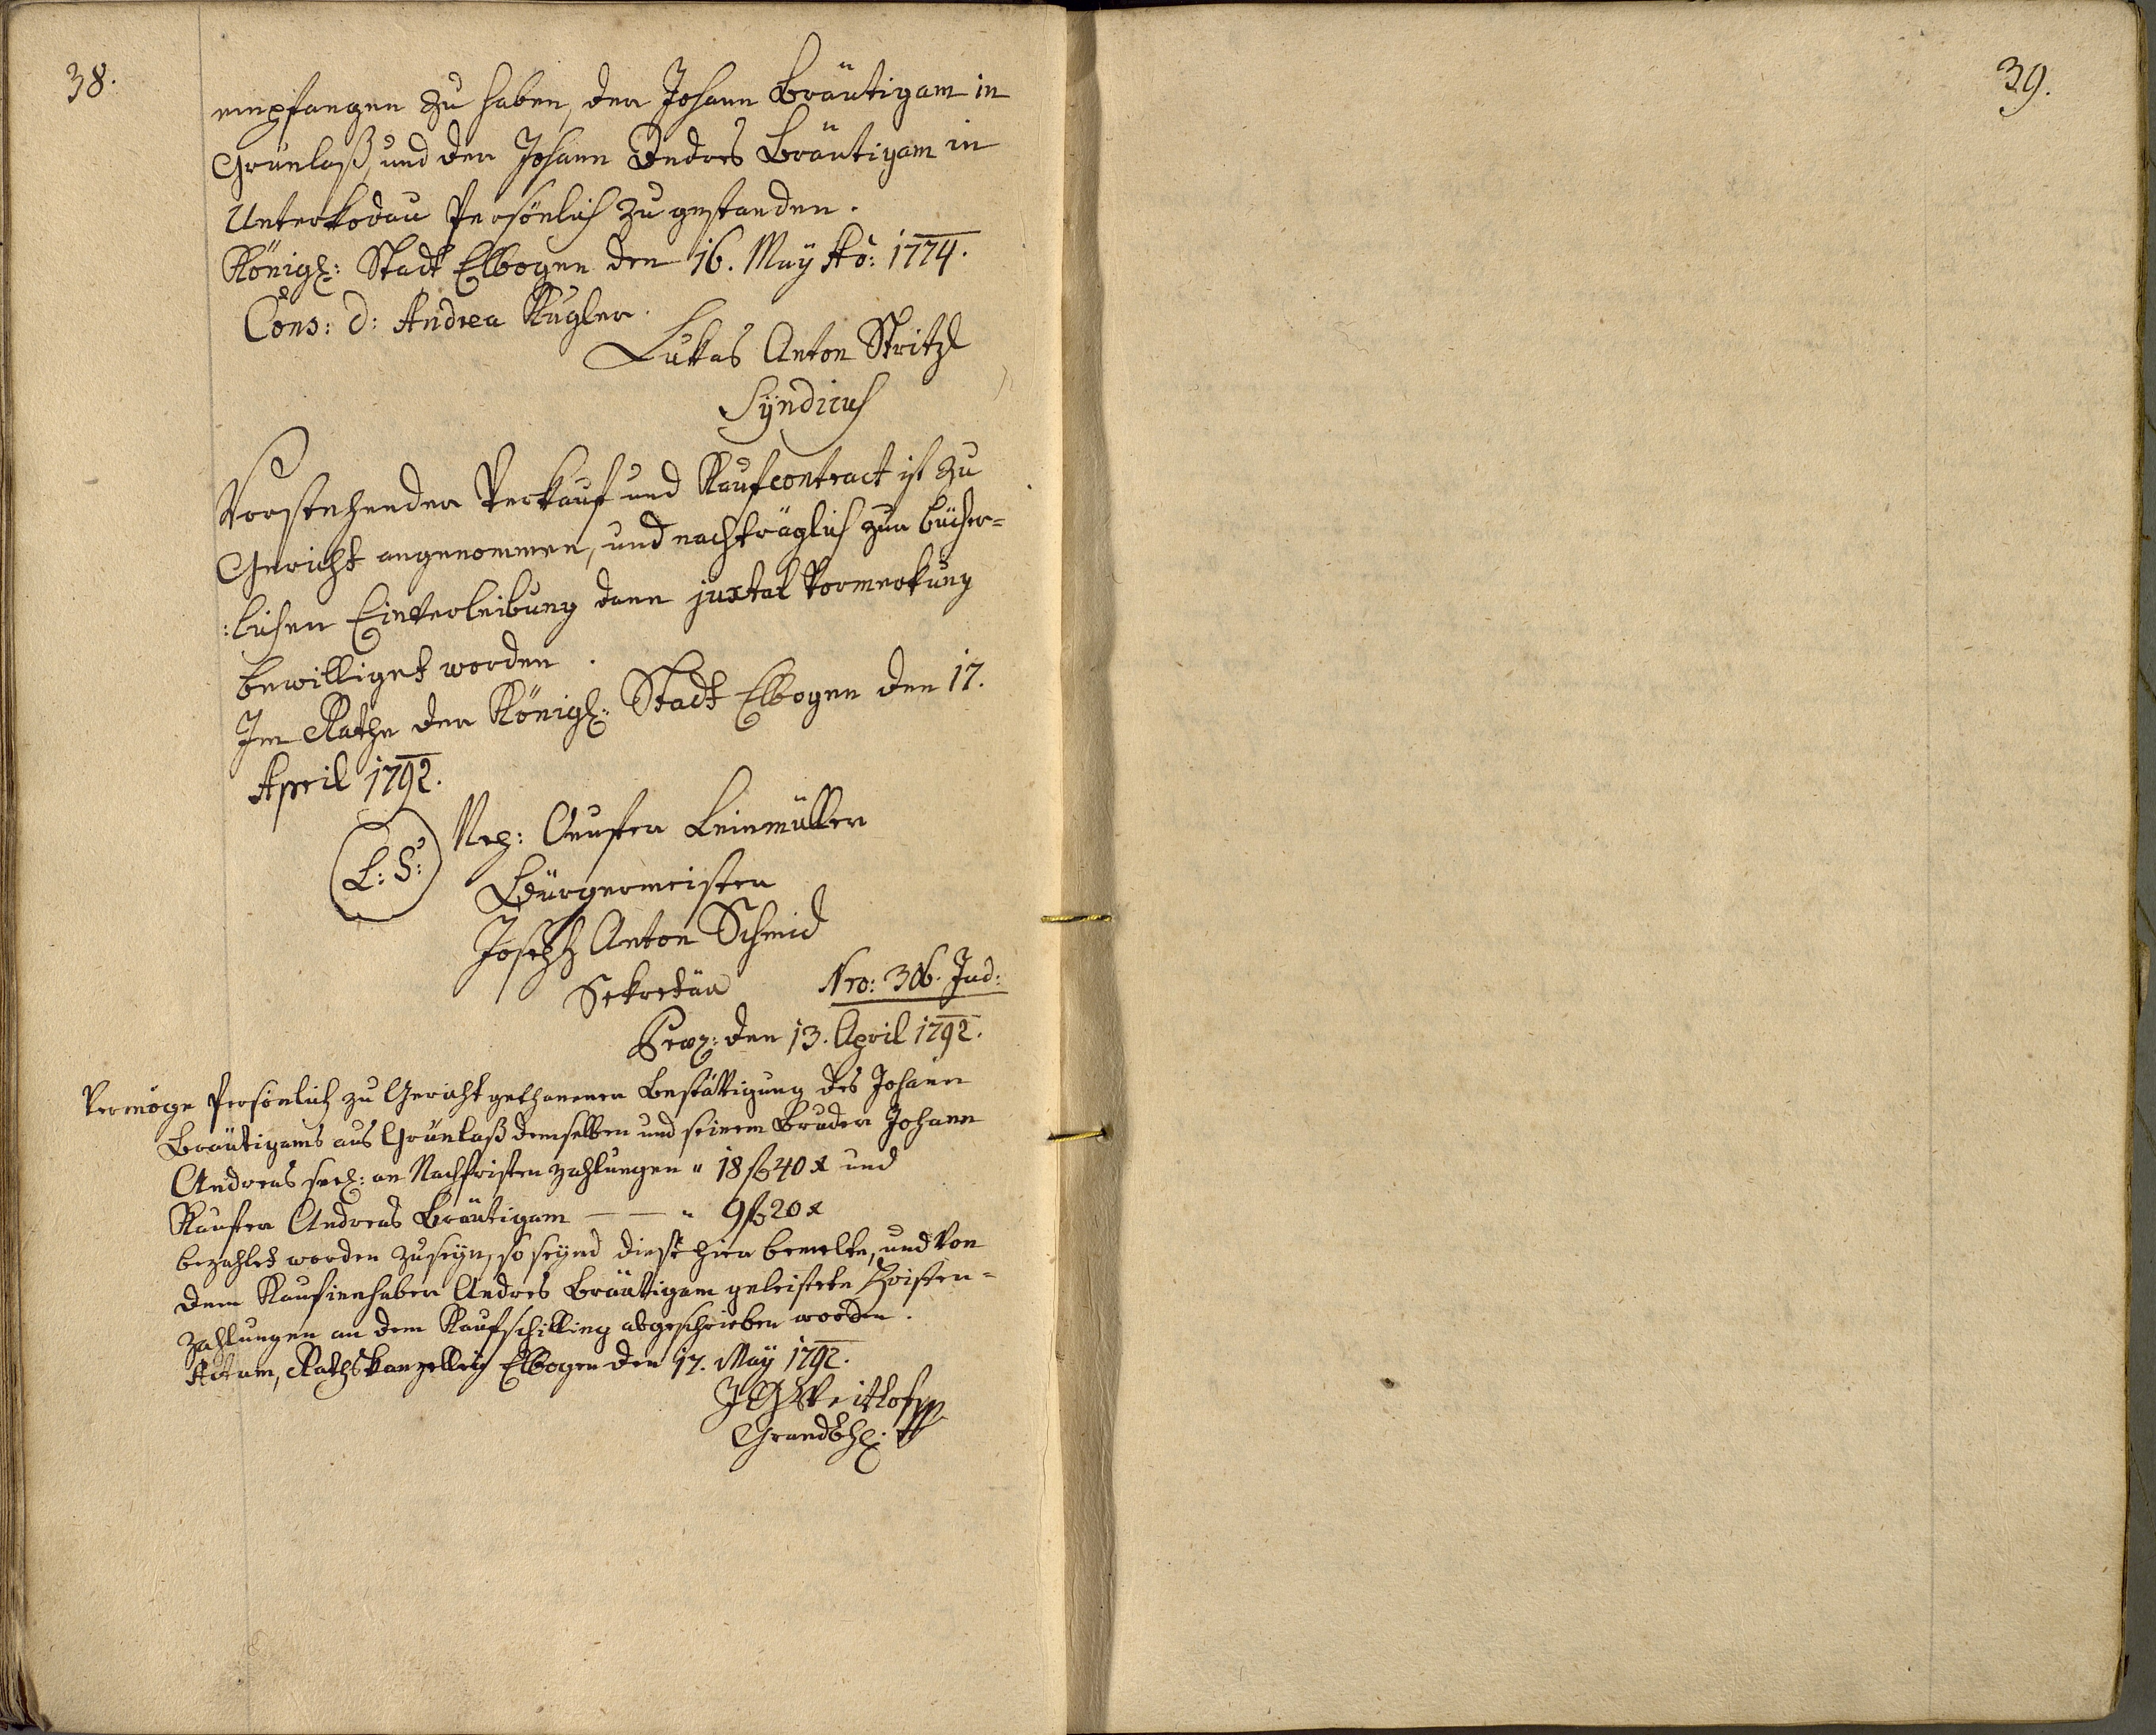 38.
empfangen zu haben, der Johann Bräutigam in
Grünlaß, und der Johann Andres Bräutigam in
Unterkodau Persönlich zugestanden.
Königl: Stadt Elbogen den 16. May Aô: 1774.
Cons: d: Andrea Kugler.
Lukas Anton Stritzl
Syndicus
Vorstehender Verkauf und Kaufcontract ist zu
Gericht angenommen, und nachträglich zur bücher=
:lichen Einverleibung dann juxtal Vormerkung
bewilliget worden.
Im Rathe der Königl: Stadt Elbogen den 17.
April 1792.
L: S:
Nep: Leinmüller
Bürgermeister
Joseph Anton Schmid
Sekretär
Nro: 306. Jud:
den 13. April 1792.
Vermöge Persönlich zu Gericht gethanener Bestättigung des Johann
Bräutigams aus Grünlaß demselben und seinem Bruder Johann
Andreas seel: an Nachfristen zahlungen " 18 f 40 x und
Käufer Andreas Bräutigam — — " 9 f 20 x
bezahlet worden zuseyn, so seynd diese hier bemelte, und von
dem Kaufinnhaber Andres Bräuttigam geleistete Fristen=
zahlungen an dem Kaufschilling abgeschrieben worden.
Actum, Rathskanzelleÿ Elbogen den 17. Maÿ 1792.
Grundbhl:
39.